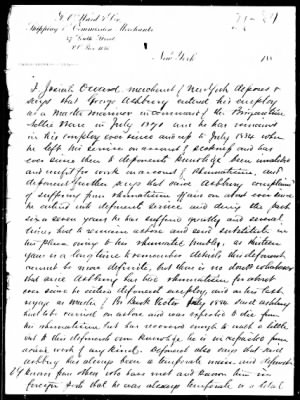 J. C. Ward & Co.
Shipping & Commission Merchants
South Street
P.O. Box
New York 188
I Josiah C. Ward, merchant of New York deposes &
says that George Ashbury entered his employ
as a Master Mariner in command of the Brigantine
in July 1871 and he has remained
in his employ ever since and up to July 1884 when
he left his service on account of sickness and has
ever since then to deponents knowledge been
unfit for work on account of rheumatism, and
deponent further says that said Ashbury complained
of suffering from rheumatism pains about ever since
he entered into deponents service and during the past
six or seven years he has suffered greatly and several
times had to remain ashore and send substitute in
his place owing to his rheumatic trouble, as thirteen
years is a long time to remember details this deponent
cannot be more definite, but there is no doubt whatever
that said Ashbury has had rheumatism for about
ever since he entered deponents employ, and on his last
voyage as Master of Bk Victor July 1884 said Ashbury
had to be carried on shore and was expected to die from
his rheumatism but has recovered enough to walk a little
but to this deponents own knowledge he is incapable from
work of any kind. Deponent also says that said
Ashbury has always been a temperate man and deponent
knows from others who has met and known him in
foreign ports that he was always temperate in a total